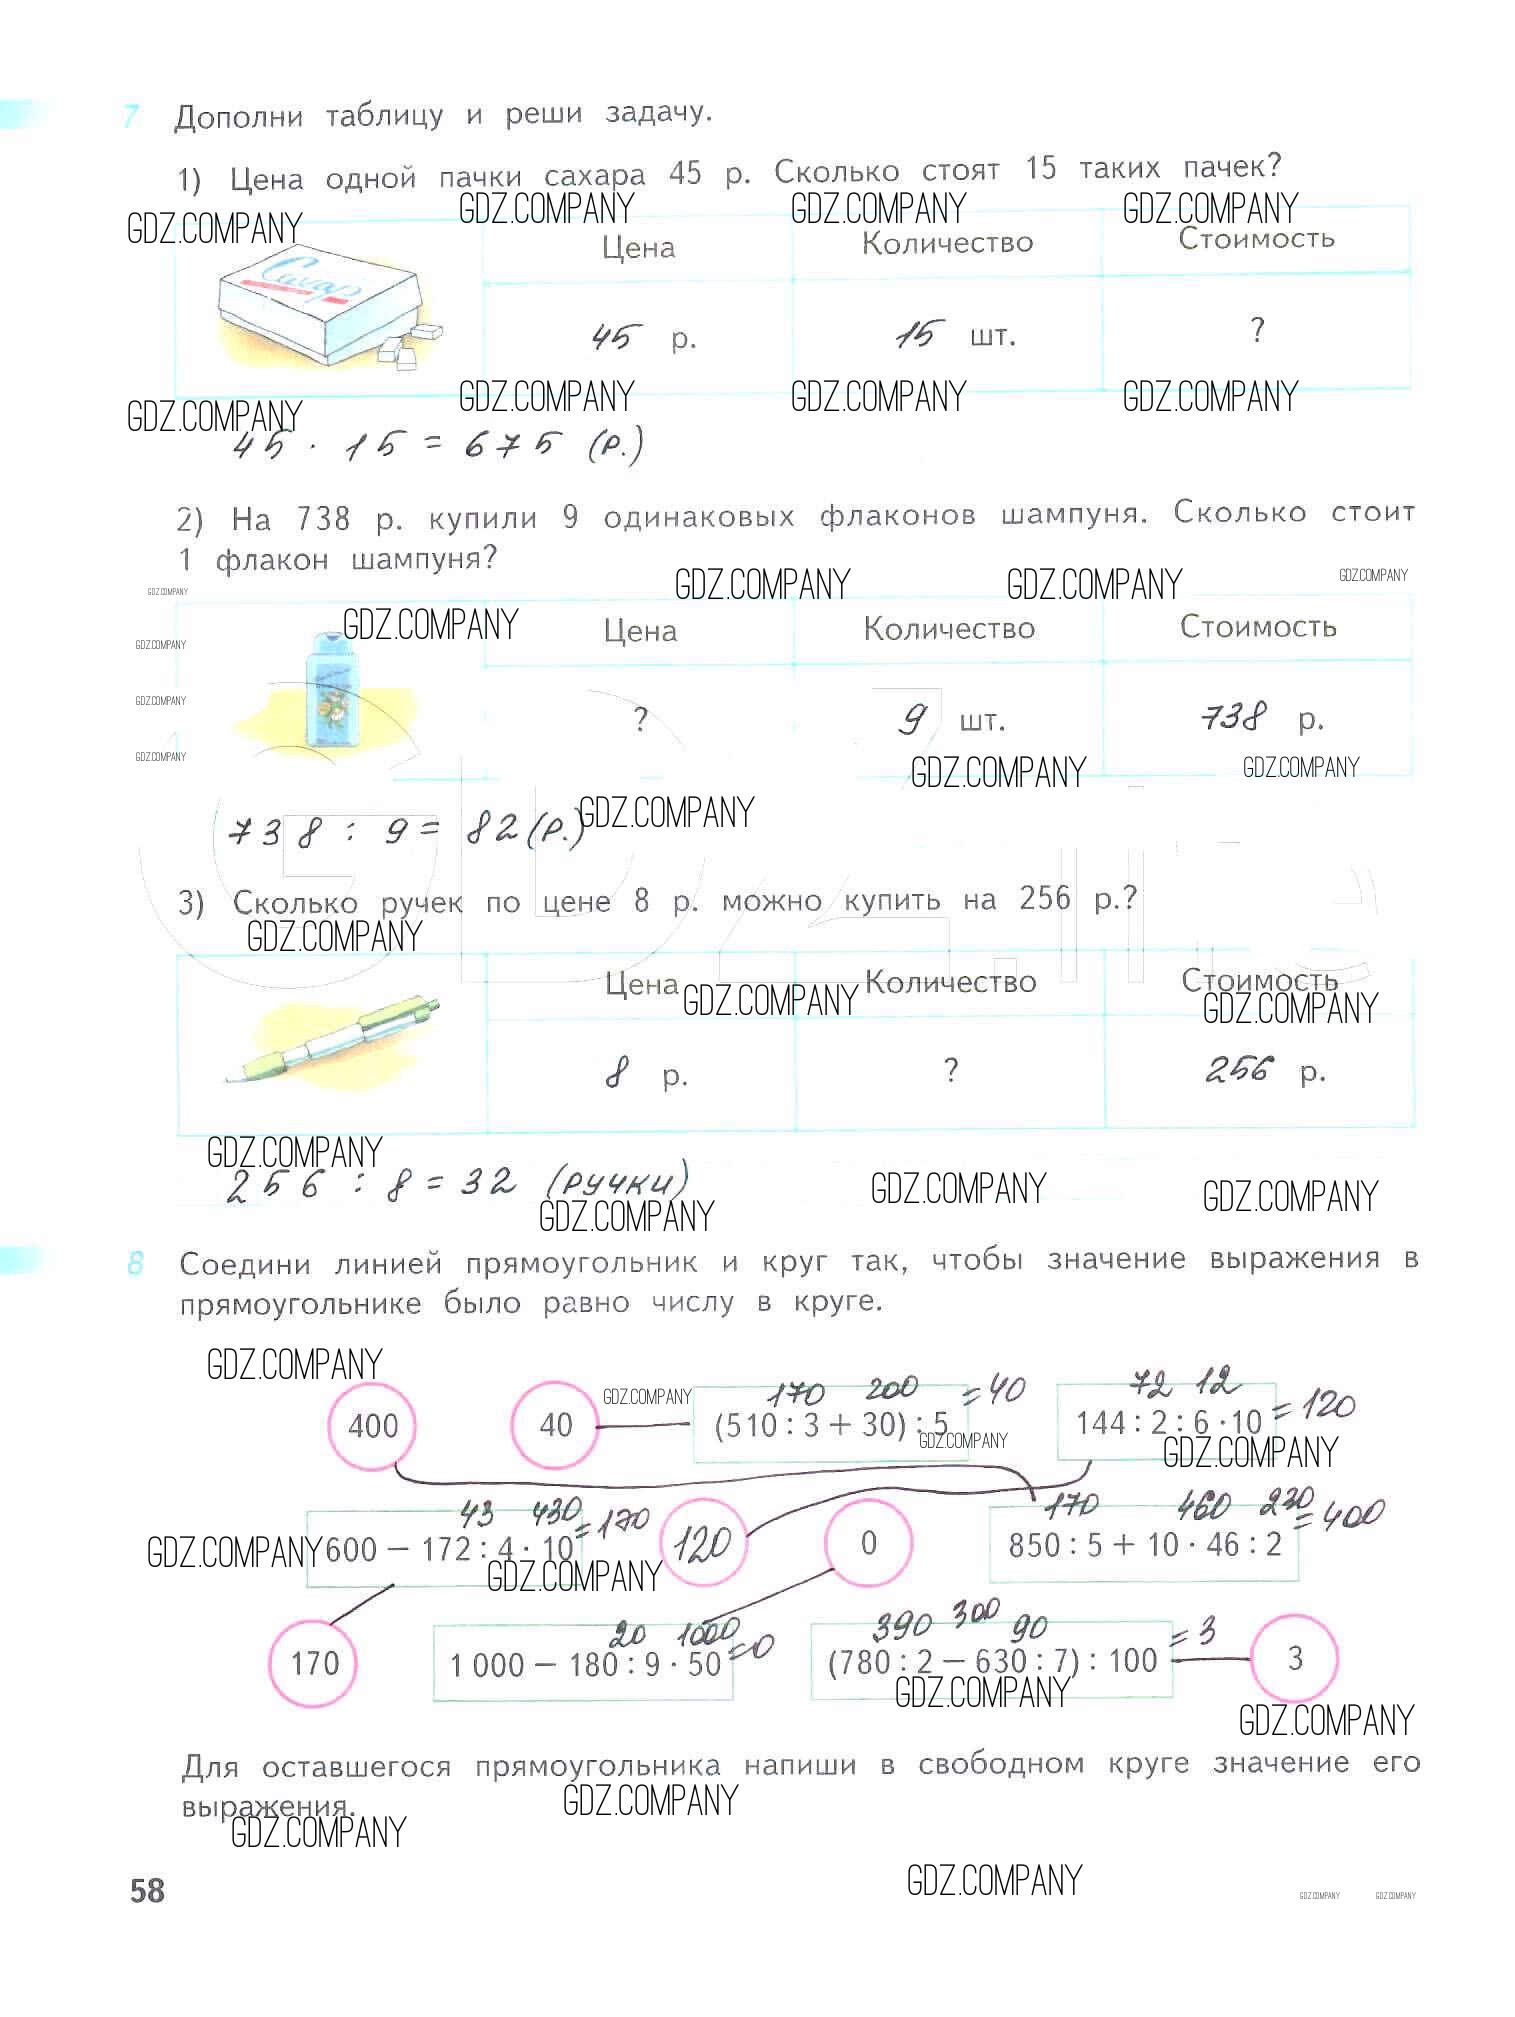 7 Дополни таблицу и реши задачу.
1) Цена одной пачки сахара 45 р. Сколько стоят 15 таких пачек?
GDZ.COMPANY GDZ.COMPANY GDZ.COMPANY GDZ.COMPANY
Цена Количество Стоимость
Сахар
45 р. 15 шт. ?
GDZ.COMPANY GDZ.COMPANY GDZ.COMPANY GDZ.COMPANY
45 · 15 = 675 (р.)
2) На 738 р. купили 9 одинаковых флаконов шампуня. Сколько стоит
1 флакон шампуня?
GDZ.COMPANY GDZ.COMPANY GDZ.COMPANY GDZ.COMPANY
GDZ.COMPANY
Цена Количество Стоимость
GDZ.COMPANY
GDZ.COMPANY
? 9 шт. 738 р.
GDZ.COMPANY GDZ.COMPANY GDZ.COMPANY
GDZ.COMPANY
738 : 9 = 82 (р.)
3) Сколько ручек по цене 8 р. можно купить на 256 р.?
GDZ.COMPANY
Цена Количество Стоимость
GDZ.COMPANY GDZ.COMPANY
8 р. ? 256 р.
GDZ.COMPANY
256 : 8 = 32 (ручки)
GDZ.COMPANY GDZ.COMPANY
GDZ.COMPANY
8 Соедини линией прямоугольник и круг так, чтобы значение выражения в
прямоугольнике было равно числу в круге.
GDZ.COMPANY
GDZ.COMPANY 170 200 =40 72 12 =120
400 40 (510 : 3 + 30) : 5 144 : 2 : 6 · 10
GDZ.COMPANY GDZ.COMPANY
43 430 =170 170 460 230 =400
600 − 172 : 4 · 10 120 0 850 : 5 + 10 · 46 : 2
GDZ.COMPANY GDZ.COMPANY
20 1000 =0 390 300 90 =3
170 1 000 − 180 : 9 · 50 (780 : 2 − 630 : 7) : 100 3
GDZ.COMPANY GDZ.COMPANY
Для оставшегося прямоугольника напиши в свободном круге значение его
выражения.
GDZ.COMPANY
GDZ.COMPANY
58
GDZ.COMPANY GDZ.COMPANY GDZ.COMPANY